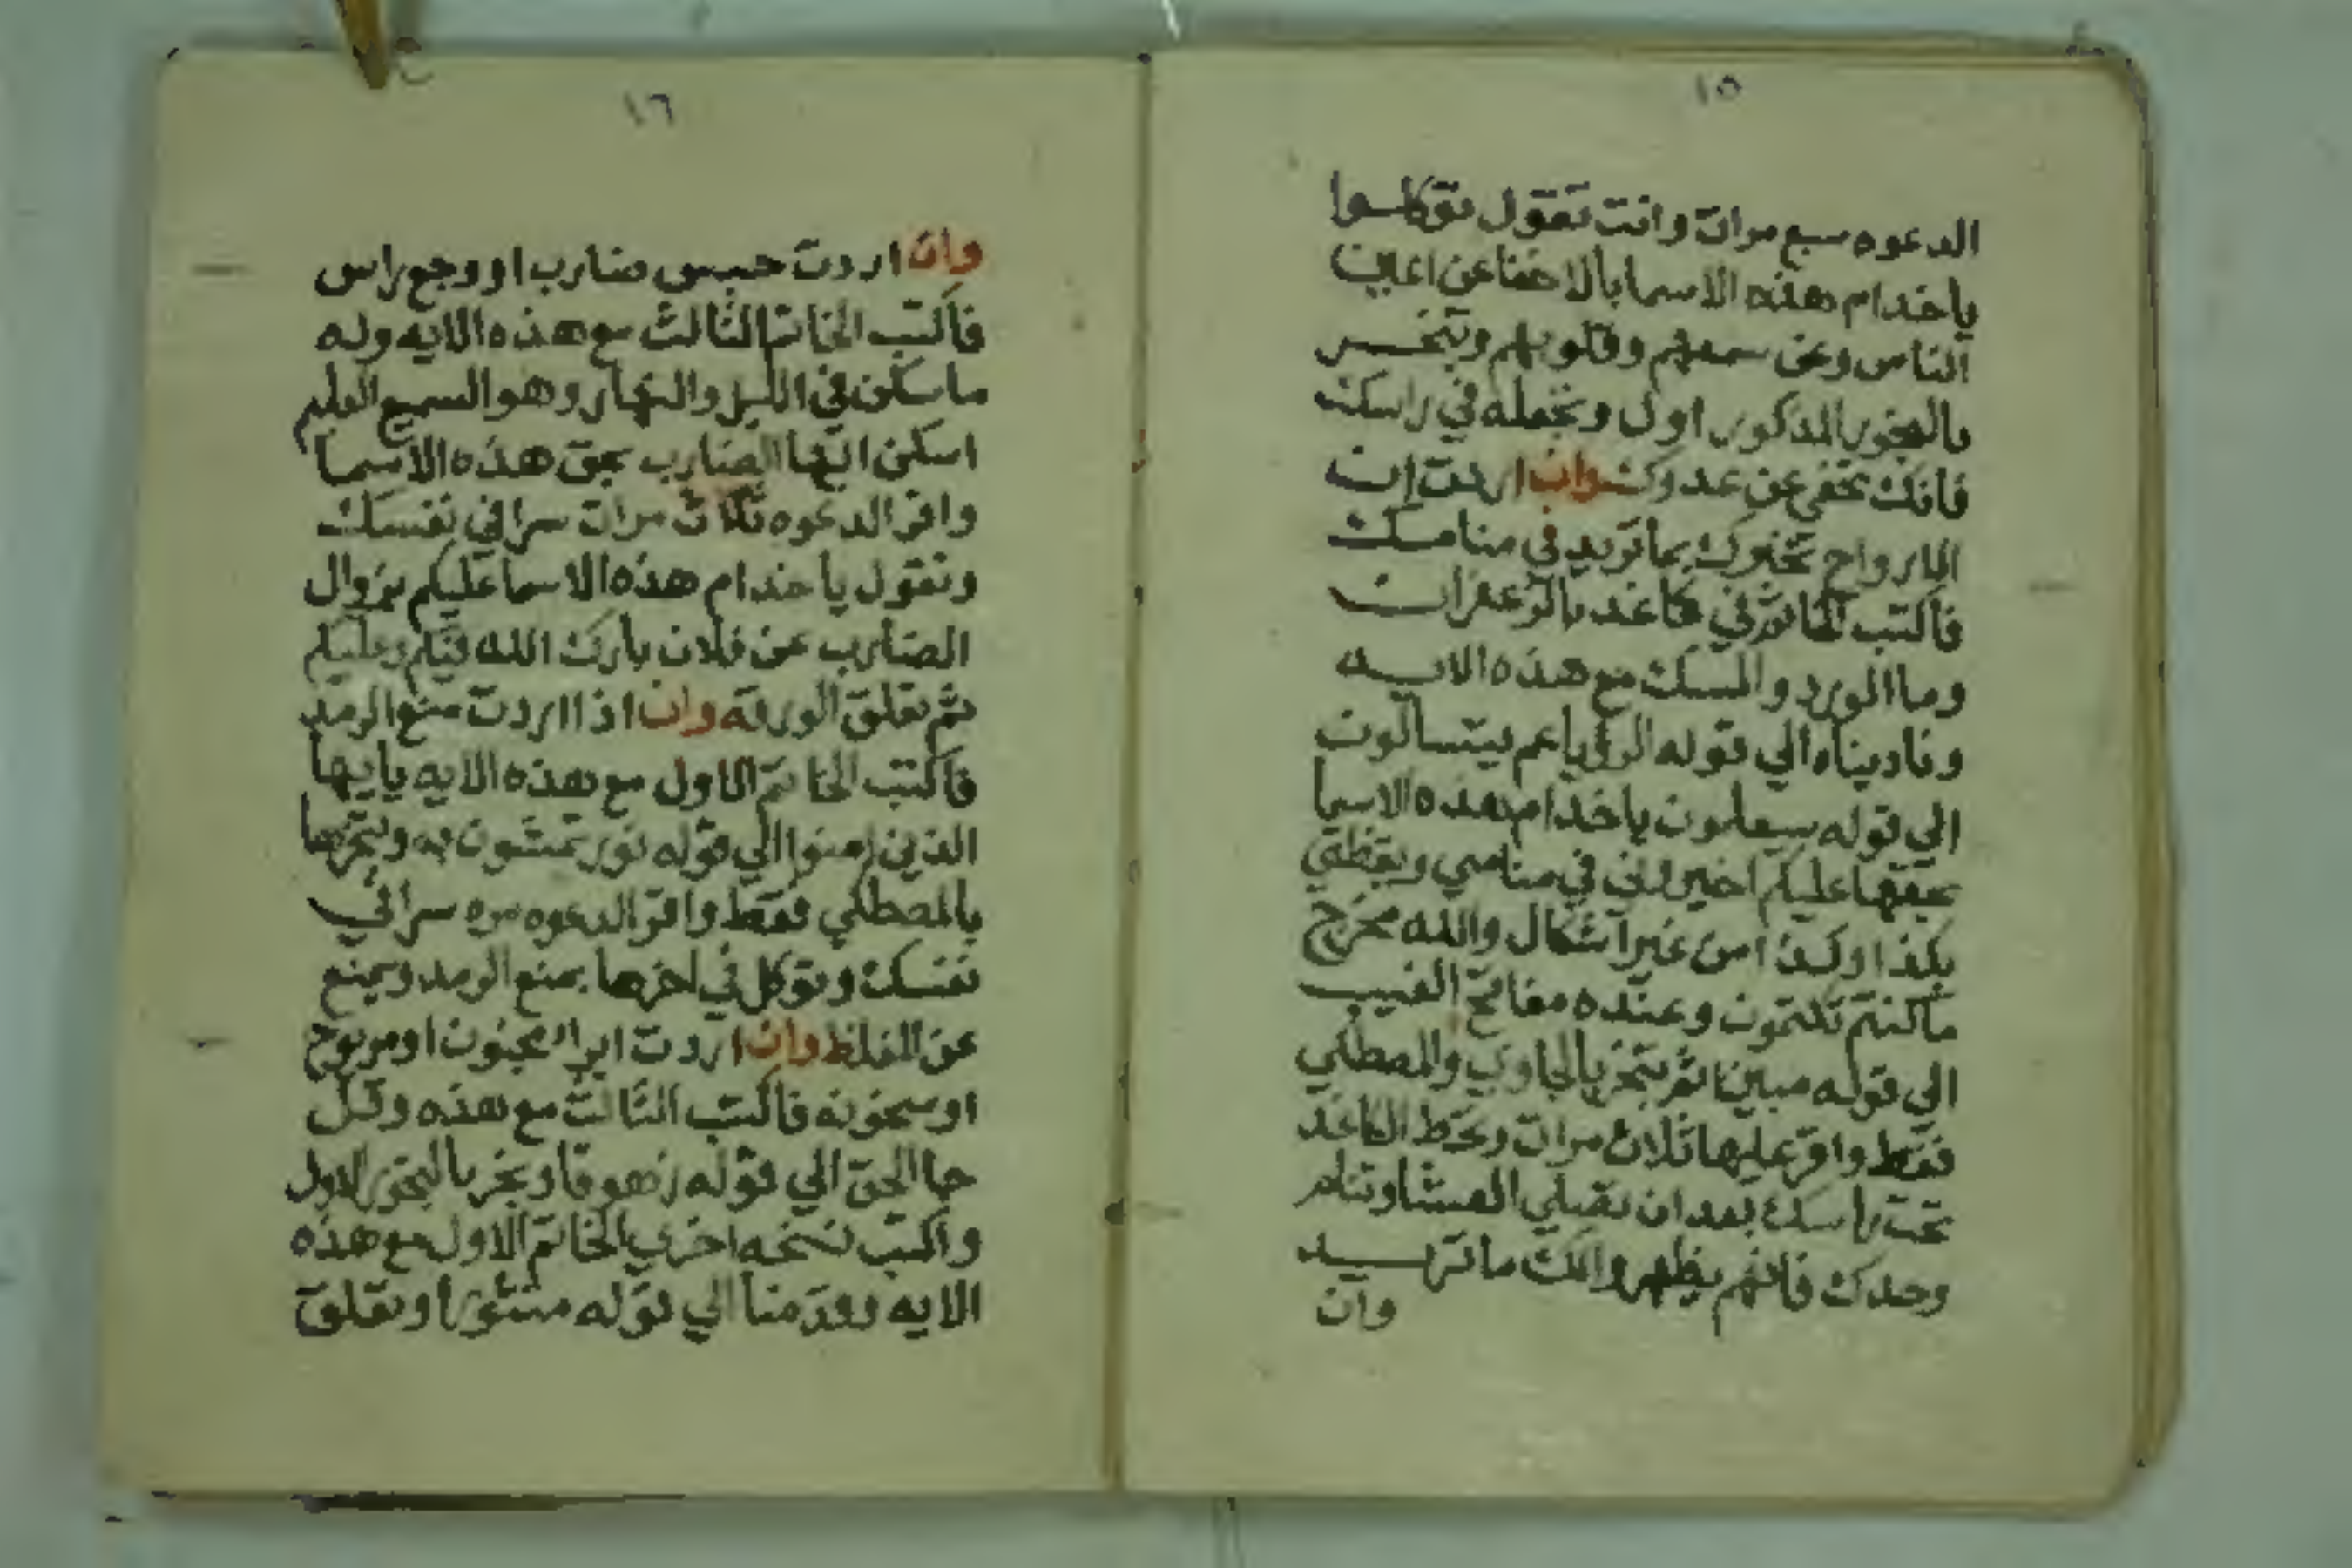 ١٥
الدعوه سبع مرات وانت تقول توكلوا
ياخدام هذه الاسما بالاخفا عن اعين
الناس وعن سمعهم وقلوبهم وتبخر
بالبخور المذكور اول وتجعله في راسك
فانك تخفي عن عدوك وان اردت ان
الارواح تخبرك بما تريد في منامك
فاكتب الخاتم في كاغد بالزعفران
وما الورد والمسك مع هذه الايه
وناديناه الي قوله الرؤيا عم يتسالون
الي قوله سيعلمون ياخدام هذه الاسما
بحقها عليكم اخبروني في منامي ويقظتي
بكذا وكذا من غير اشكال والله مخرج
ماكنتم تكتمون وعنده مفاتح الغيب
الي قوله مبين ثم تبخر بالجاوي والمصطكي
فقط واقر عليها ثلاث مرات وتحط الكاغد
تحت راسك بعد ان تصلي العشا وتنام
وحدك فانهم يظهروا لك ما تريد
وان
١٦
وان اردت حبس ضارب او وجع راس
فاكتب الخاتم الثالث مع هذه الايه وله
ماسكن في الليل والنهار وهو السميع العليم
اسكن ايها الضارب بحق هذه الاسما
واقر الدعوه ثلاث مرات سرا في نفسك
وتقول ياخدام هذه الاسما عليكم بزوال
الضارب عن فلان بارك الله فيكم وعليكم
ثم تعلق الورقه وان اذا اردت منع الرمد
فاكتب الخاتم الاول مع هذه الايه يايها
الذين امنوا الي قوله نور تمشون به وتبخرها
بالمصطكي فقط واقر الدعوه مره سرا في
نفسك وتوكل في اخرها بمنع الرمد ويمنع
عن الغلظ وان اردت ابرا مجنون او مربوح
او سخونه فاكتب الثالث مع هذه وقل
جا الحق الي قوله زهوقا وبخر بالبخور الاول
واكتب نسخه اخري الخاتم الاول مع هذه
الايه وقدمنا الي قوله منثورا وتعلق